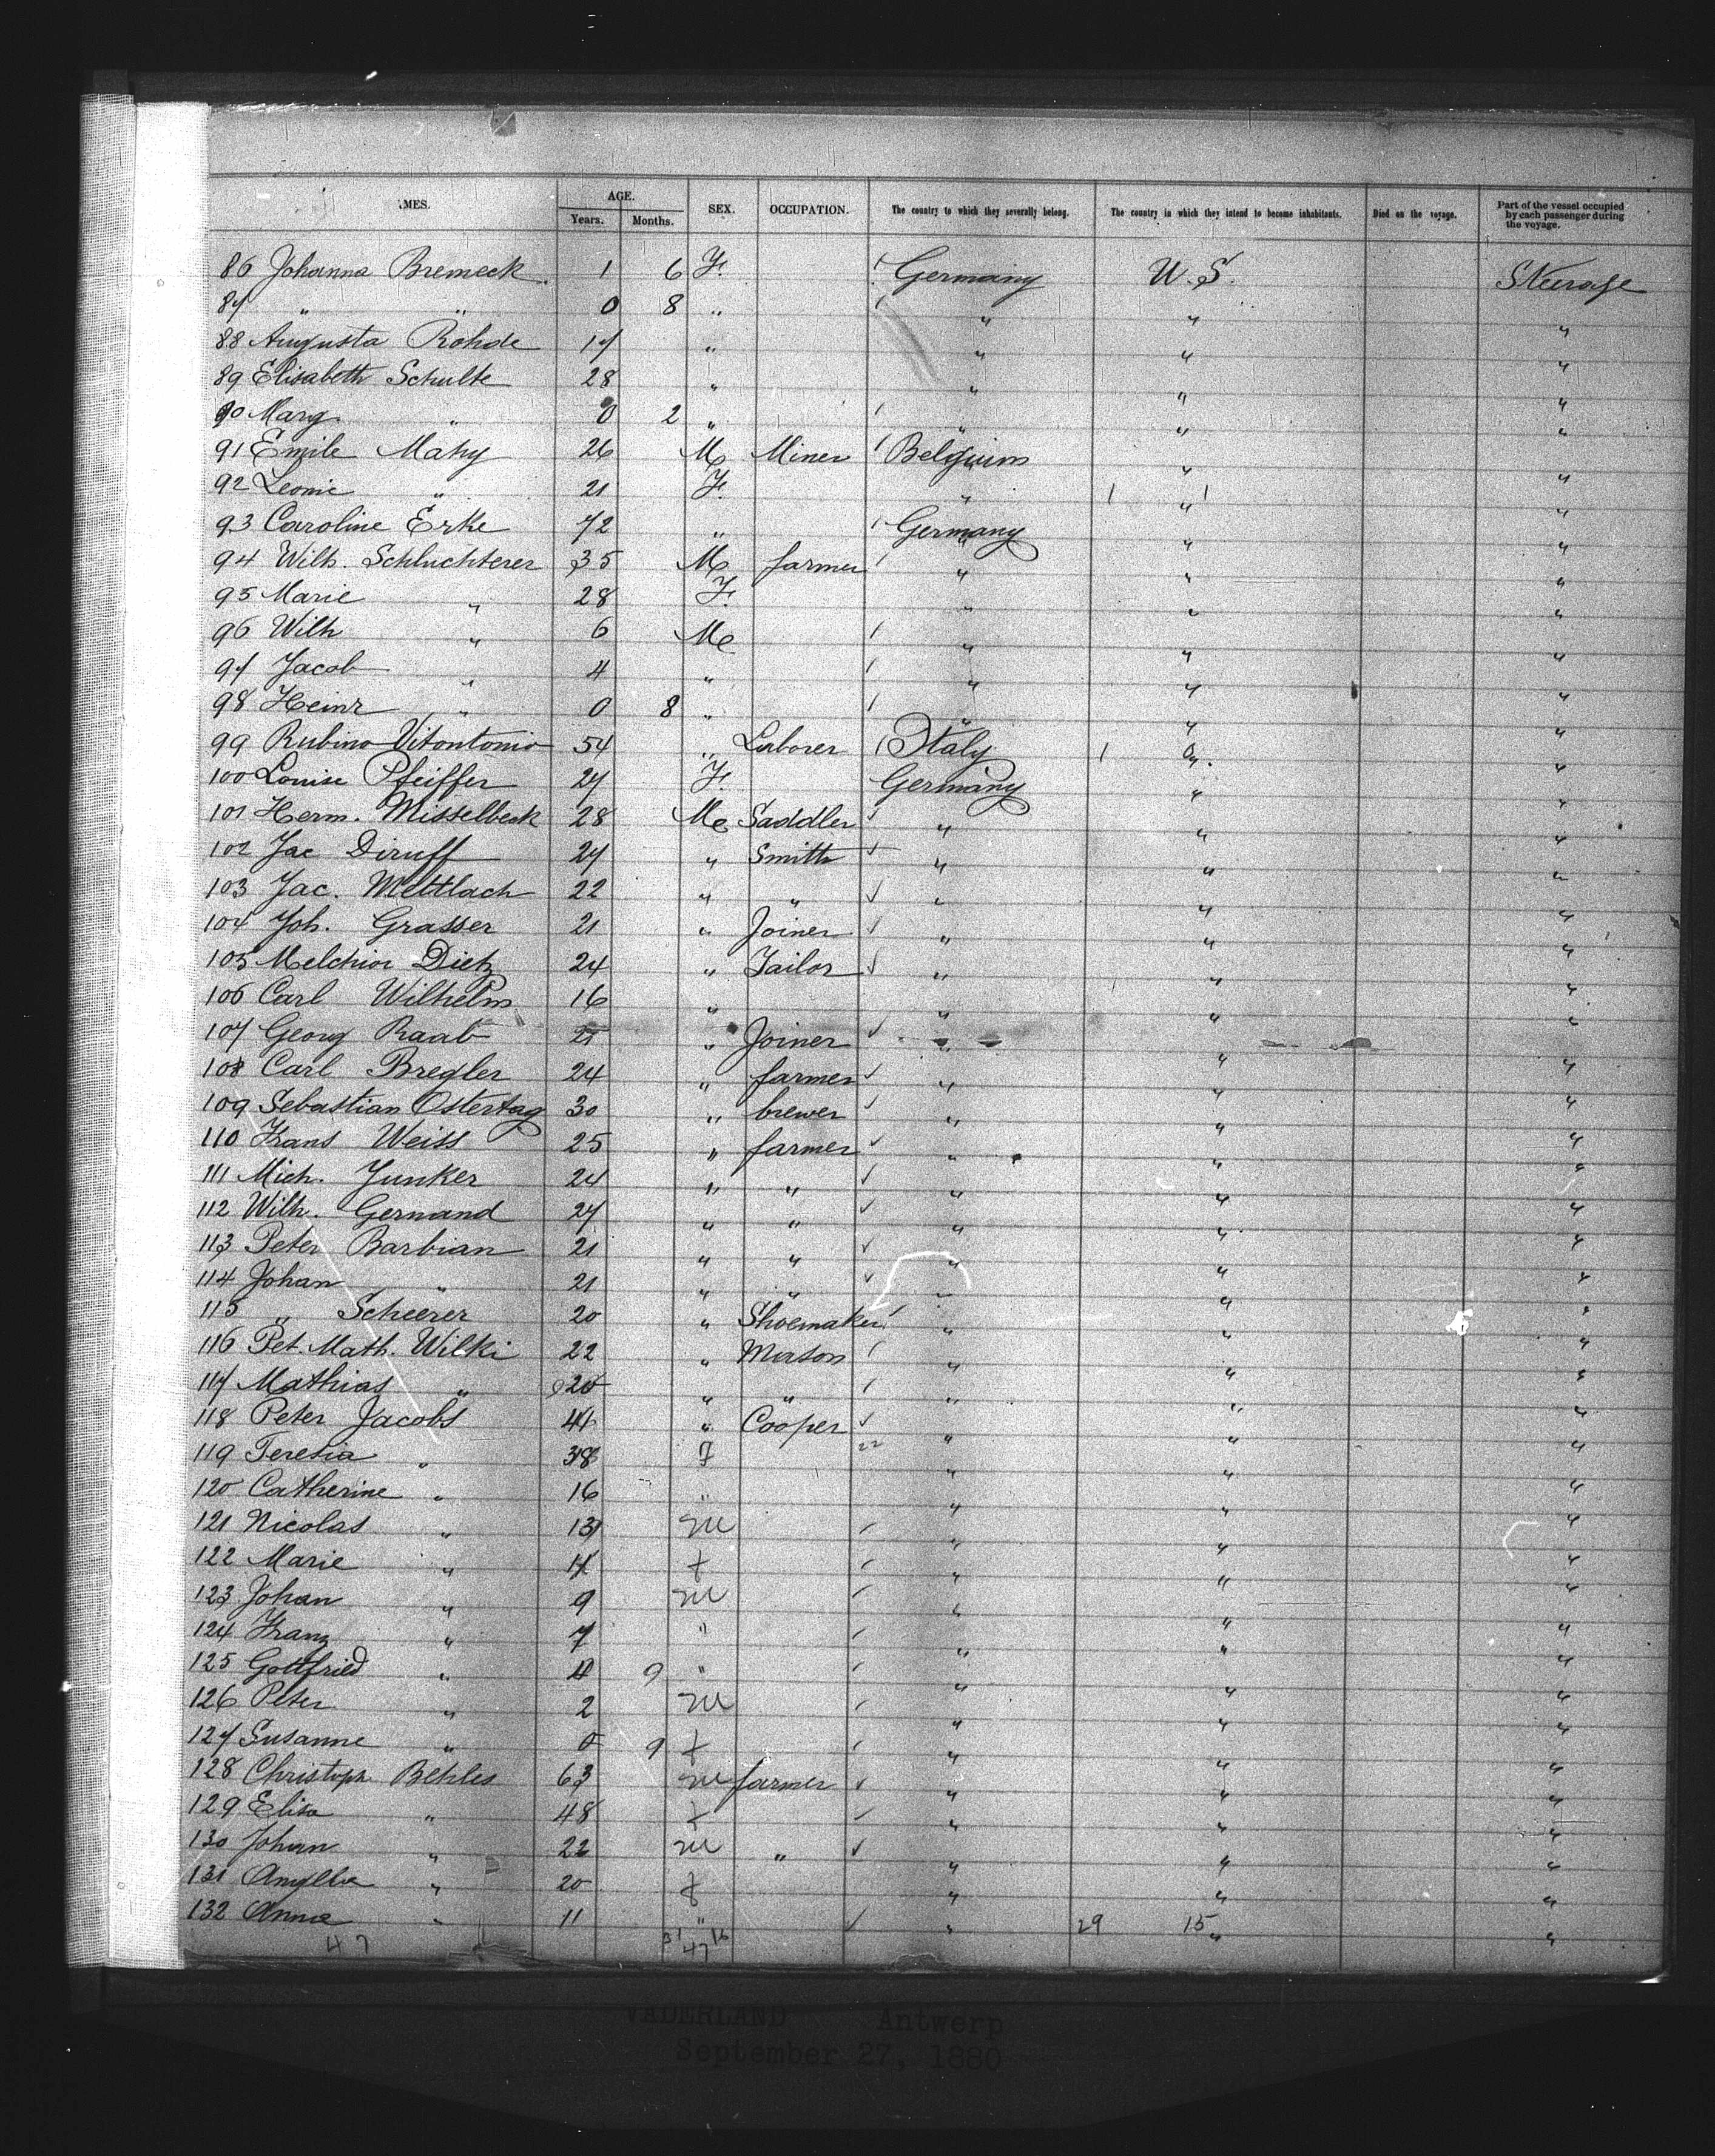 AMES. AGE. Years. Months. SEX. OCCUPATION. The country to which they severally belong. The country in which they intend to become inhabitants. Died on the voyage. Part of the vessel occupied by each passenger during the voyage.
86 Johanna Bremeck 1 6 F. Germany U.S. Steerage
87 " " 0 8 " " " "
88 Augusta Rohde 17 " " " "
89 Elisabeth Schulte 28 " " " "
90 Mary " 0 2 " " " "
91 Emile Mahy 26 M Miner Belgium " "
92 Leonie " 21 F. " " "
93 Caroline Erke 72 " Germany " "
94 Wilh. Schluchterer 35 M farmer " " "
95 Marie " 28 F. " " "
96 Wilh " 6 M " " "
97 Jacob " 4 " " " "
98 Heinr " 0 8 " " " "
99 Rubino Vitontonio 54 " Laborer Italy " "
100 Louise Pfeiffer 27 F. Germany " "
101 Herm. Misselbeck 28 M Saddler " " "
102 Jac Diruff 27 " Smith " " "
103 Jac. Mettlach 22 " " " " "
104 Joh. Grasser 21 " Joiner " " "
105 Melchior Dietz 24 " Tailor " " "
106 Carl Wilhelm 16 " " " "
107 Georg Raab 25 " Joiner " " "
108 Carl Bregler 24 " farmer " " "
109 Sebastian Ostertag 30 " brewer " " "
110 Frans Weiss 25 " farmer " " "
111 Mich. Junker 24 " " " " "
112 Wilh. Gernand 27 " " " " "
113 Peter Barbian 21 " " " " "
114 Johan " 21 " " " " "
115 " Scheerer 20 " Shoemaker " " "
116 Pet. Math. Wilki 22 " Mason " " "
117 Mathias " 20 " " " " "
118 Peter Jacobs 41 " Cooper " " "
119 Teresia " 38 F " " "
120 Catherine " 16 " " " "
121 Nicolas " 13 M " " "
122 Marie " 11 f " " "
123 Johan " 9 M " " "
124 Franz " 7 " " " "
125 Gottfried " 4 9 " " " "
126 Peter " 2 M " " "
127 Susanne " 0 9 f " " "
128 Christoph Behles 63 M farmer " " "
129 Elisa " 48 f " " "
130 Johan " 22 M " " " "
131 " 20 f " " "
132 Anna " 11 " " 29 15 " "
47 31 47 16
VADERLAND Antwerp
September 27, 1880